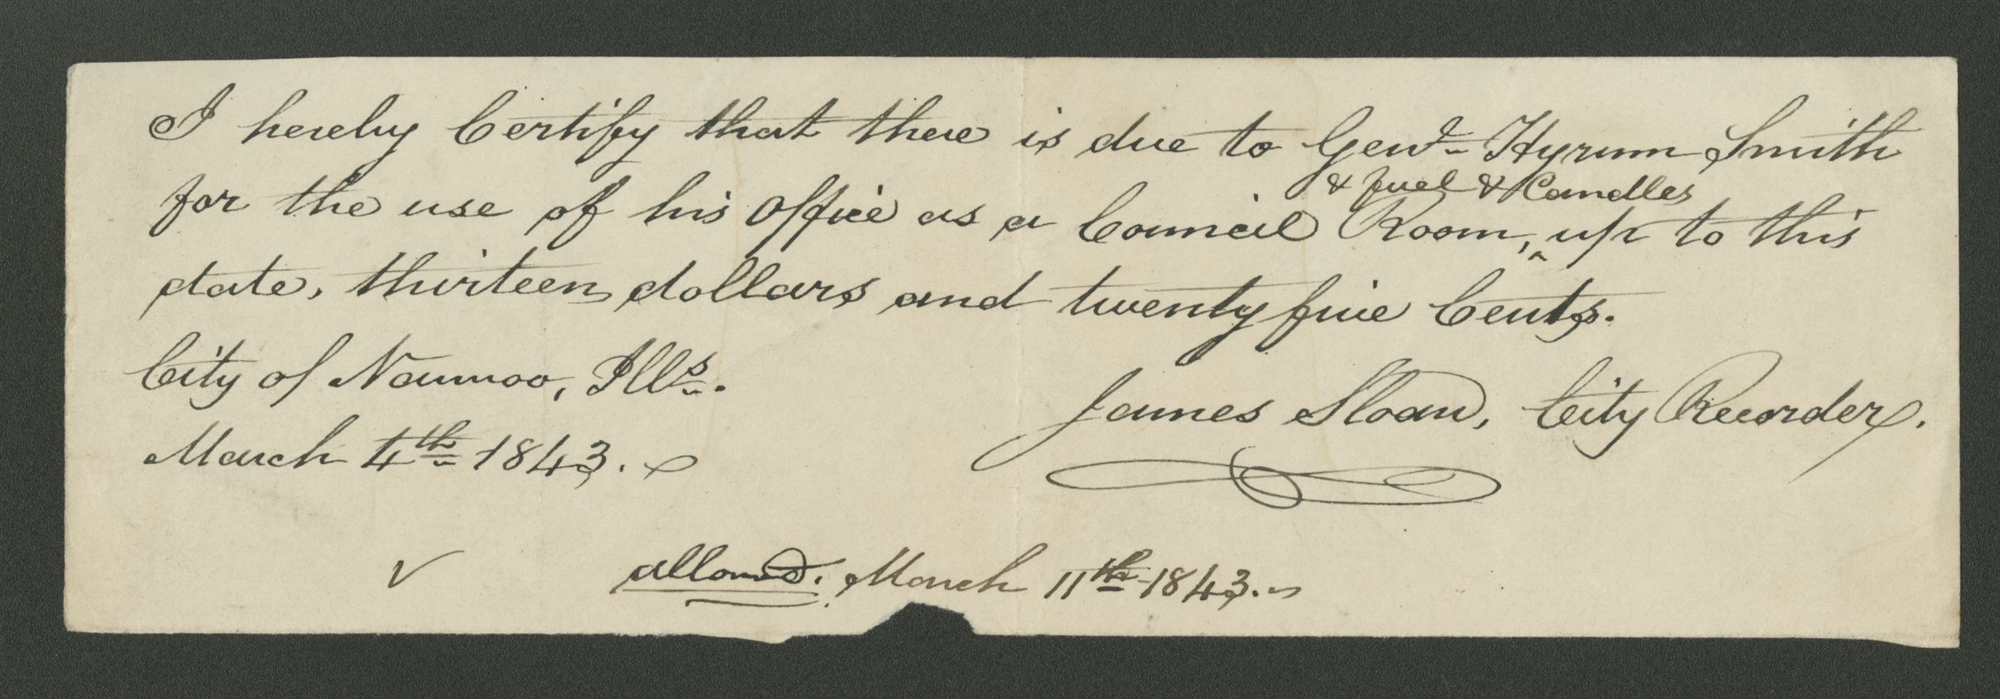 I hereby Certify that there is due to Genl. Hyrum Smith
for the use of his Office as a Council Room, ^ & fuel & Candles up to this
date, thirteen dollars and twenty five Cents.
City of Nauvoo, Ills.
James Sloan, City Recorder.
March 4th 1843.
✓ allowed. March 11th 1843.